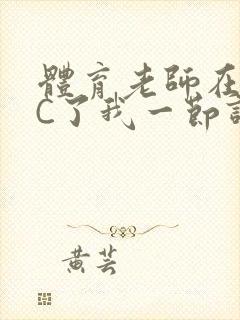 體育老師在
C了我一節
黃芸